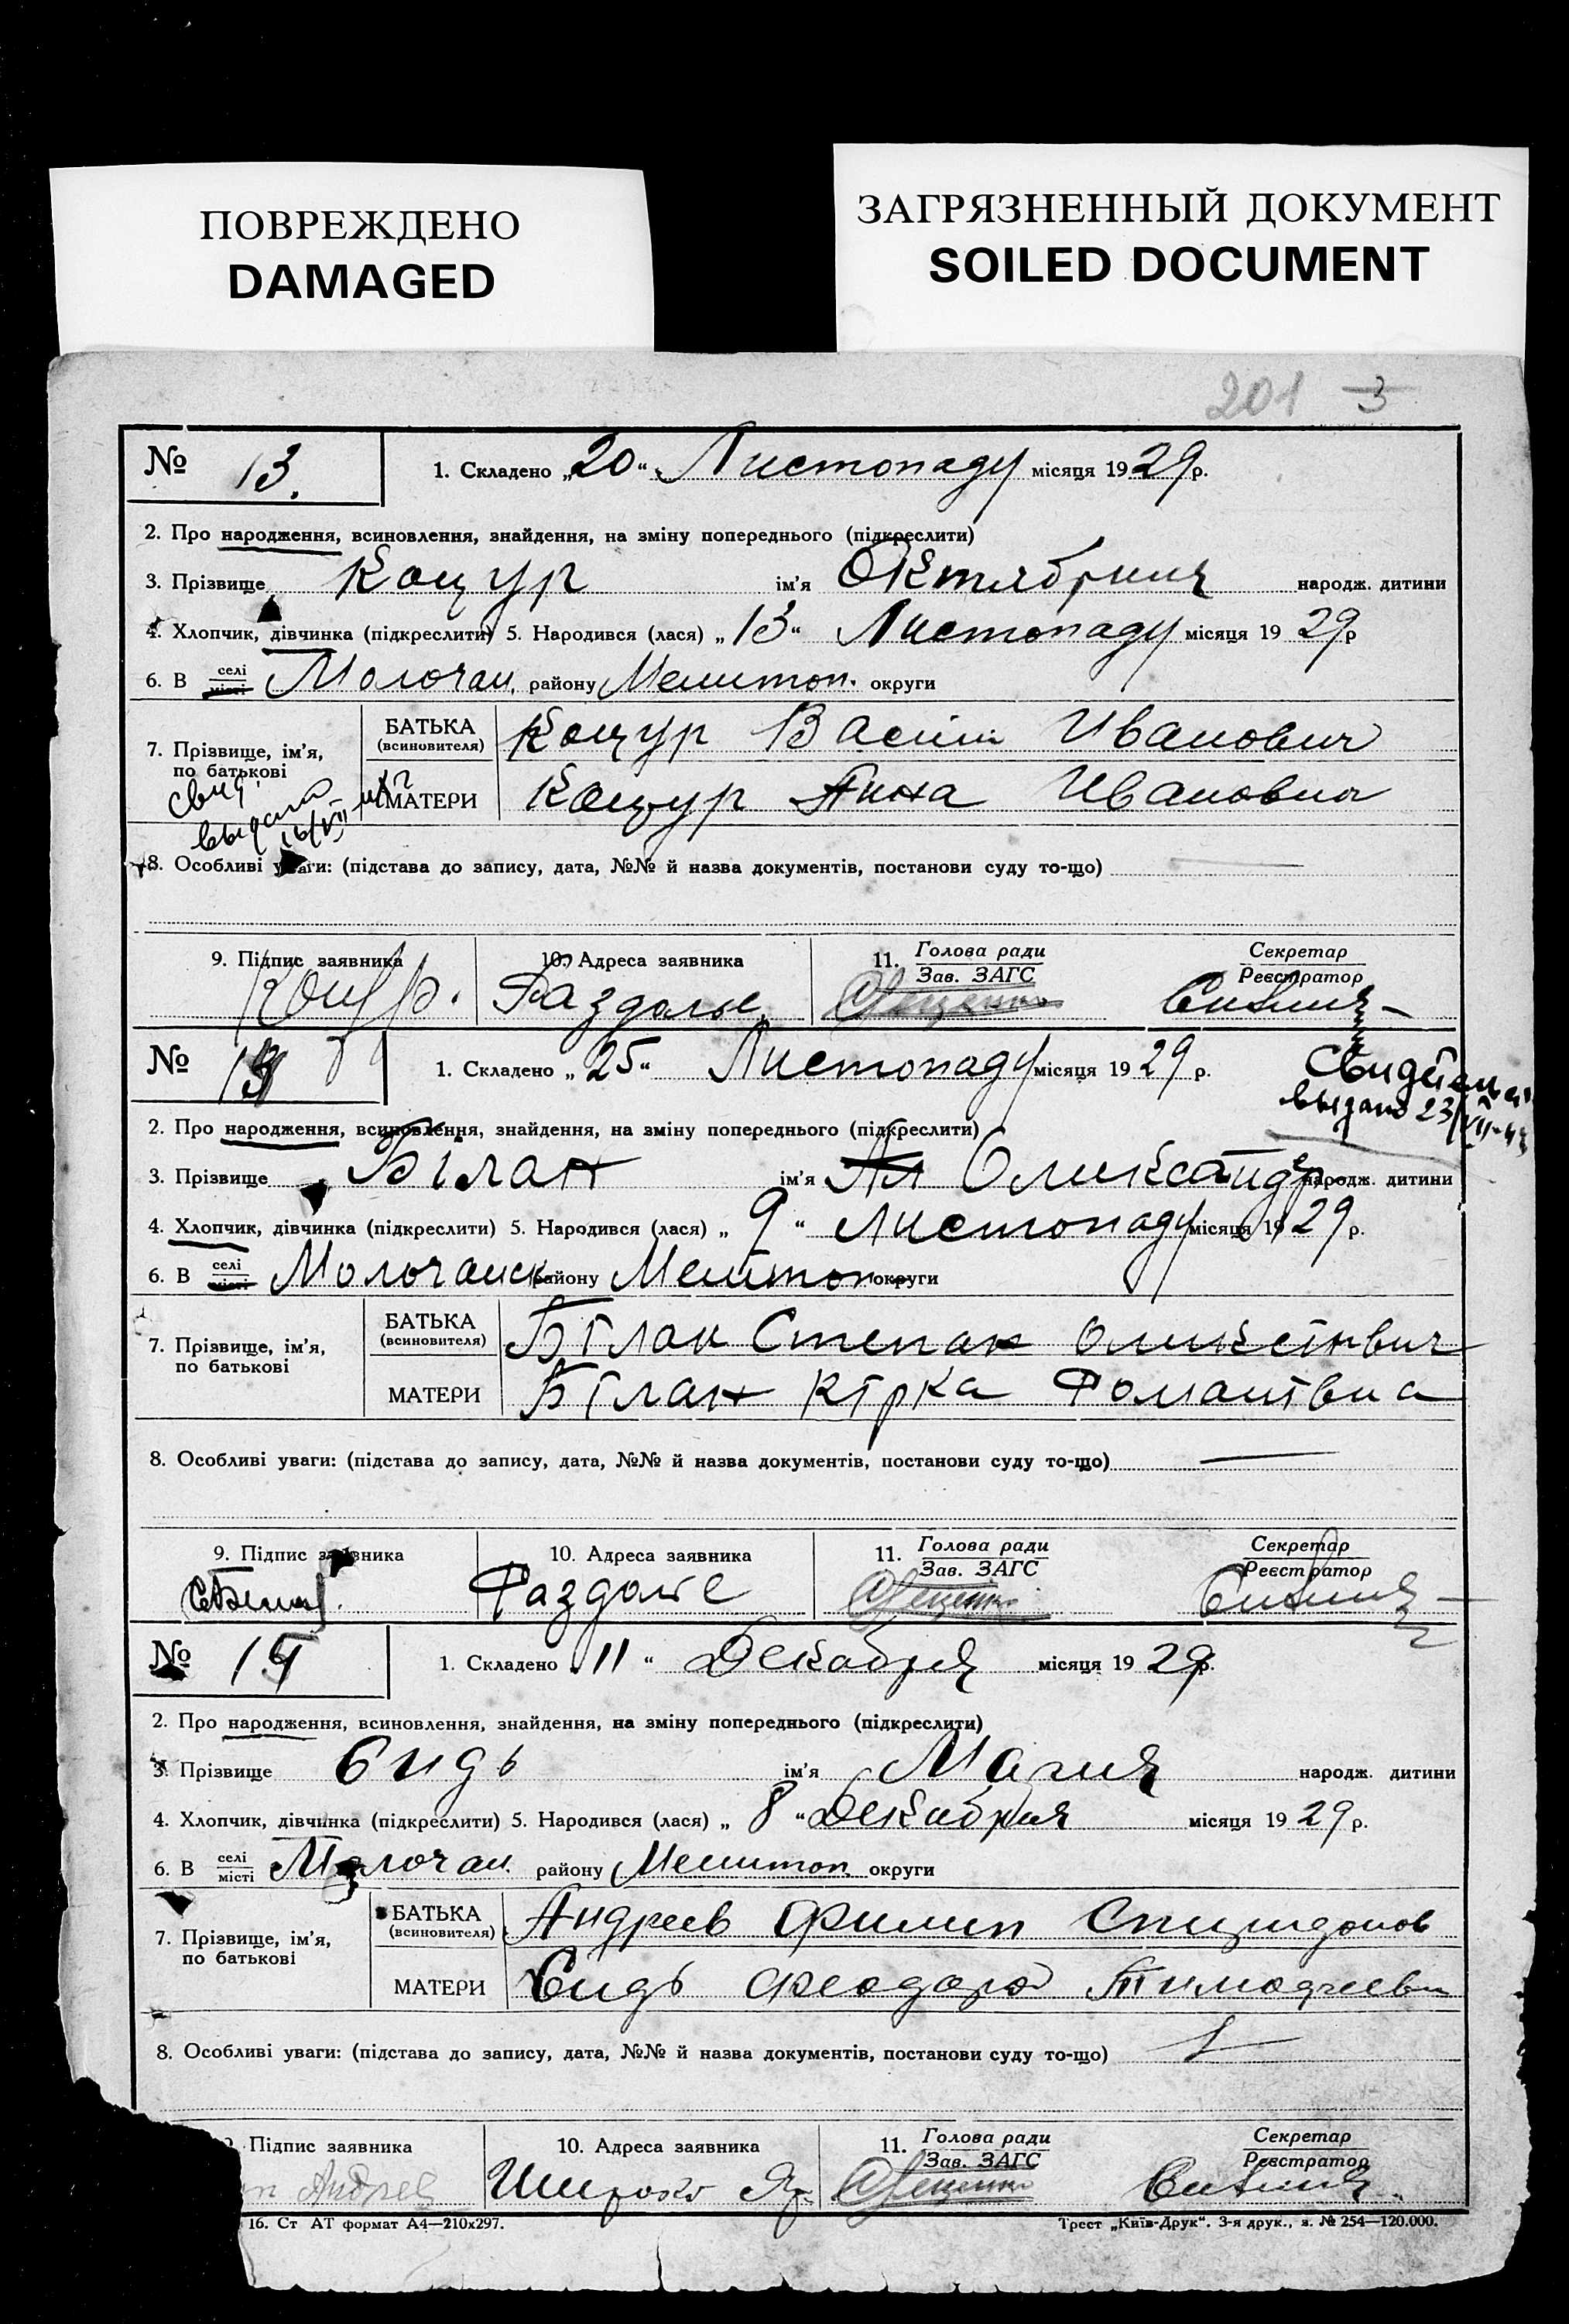 ПОВРЕЖДЕНО
DAMAGED
ЗАГРЯЗНЕННЫЙ ДОКУМЕНТ
SOILED DOCUMENT
201 3
№ 13. 1. Складено „20“ Листопаду місяця 1929 р.
2. Про народження, всиновлення, знайдення, на зміну попереднього (підкреслити)
3. Прізвище Коцур ім'я Октябрина народж. дитини
4. Хлопчик, дівчинка (підкреслити) 5. Народився (лася) „13“ Листопаду місяця 1929 р
6. В селі місті Молочан. району Мелитоп. округи
7. Прізвище, ім'я, по батькові
БАТЬКА (всиновителя) Коцур Васіли Иванович
МАТЕРИ Коцур Анна Ивановна
Свид.
выдано
16/VII
8. Особливі уваги: (підстава до запису, дата, №№ й назва документів, постанови суду то-що)
9. Підпис заявника 10. Адреса заявника 11. Голова ради Зав. ЗАГС Секретар Реєстратор
Коцур. Раздолье
№ 1. Складено „25“ Листопаду місяця 1929 р.
Свидетель
выдано 23/VII-
2. Про народження, всиновлення, знайдення, на зміну попереднього (підкреслити)
3. Прізвище Білан ім'я Ал Олександр народж. дитини
4. Хлопчик, дівчинка (підкреслити) 5. Народився (лася) „9“ Листопаду місяця 1929 р.
6. В селі місті Молочанск району Мелитоп округи
7. Прізвище, ім'я, по батькові
БАТЬКА (всиновителя) Білан Степан
МАТЕРИ Білан Кірка Романівна
8. Особливі уваги: (підстава до запису, дата, №№ й назва документів, постанови суду то-що)
9. Підпис заявника 10. Адреса заявника 11. Голова ради Зав. ЗАГС Секретар Реєстратор
Раздолье
№ 1. Складено „11“ Декабря місяця 1929 р.
2. Про народження, всиновлення, знайдення, на зміну попереднього (підкреслити)
3. Прізвище Сидь ім'я Мария народж. дитини
4. Хлопчик, дівчинка (підкреслити) 5. Народився (лася) „8“ Декабря місяця 1929 р.
6. В селі місті Молочан. району Мелитоп. округи
7. Прізвище, ім'я, по батькові
БАТЬКА (всиновителя) Андреев Филип Спиридонов
МАТЕРИ Сидь Феодора Тимофеевн
8. Особливі уваги: (підстава до запису, дата, №№ й назва документів, постанови суду то-що)
Підпис заявника 10. Адреса заявника 11. Голова ради Зав. ЗАГС Секретар Реєстратор
Андреев Широко Яр
16. Ст АТ формат А4—210x297. Трест „Київ-Друк“. 3-я друк., з. № 254—120.000.